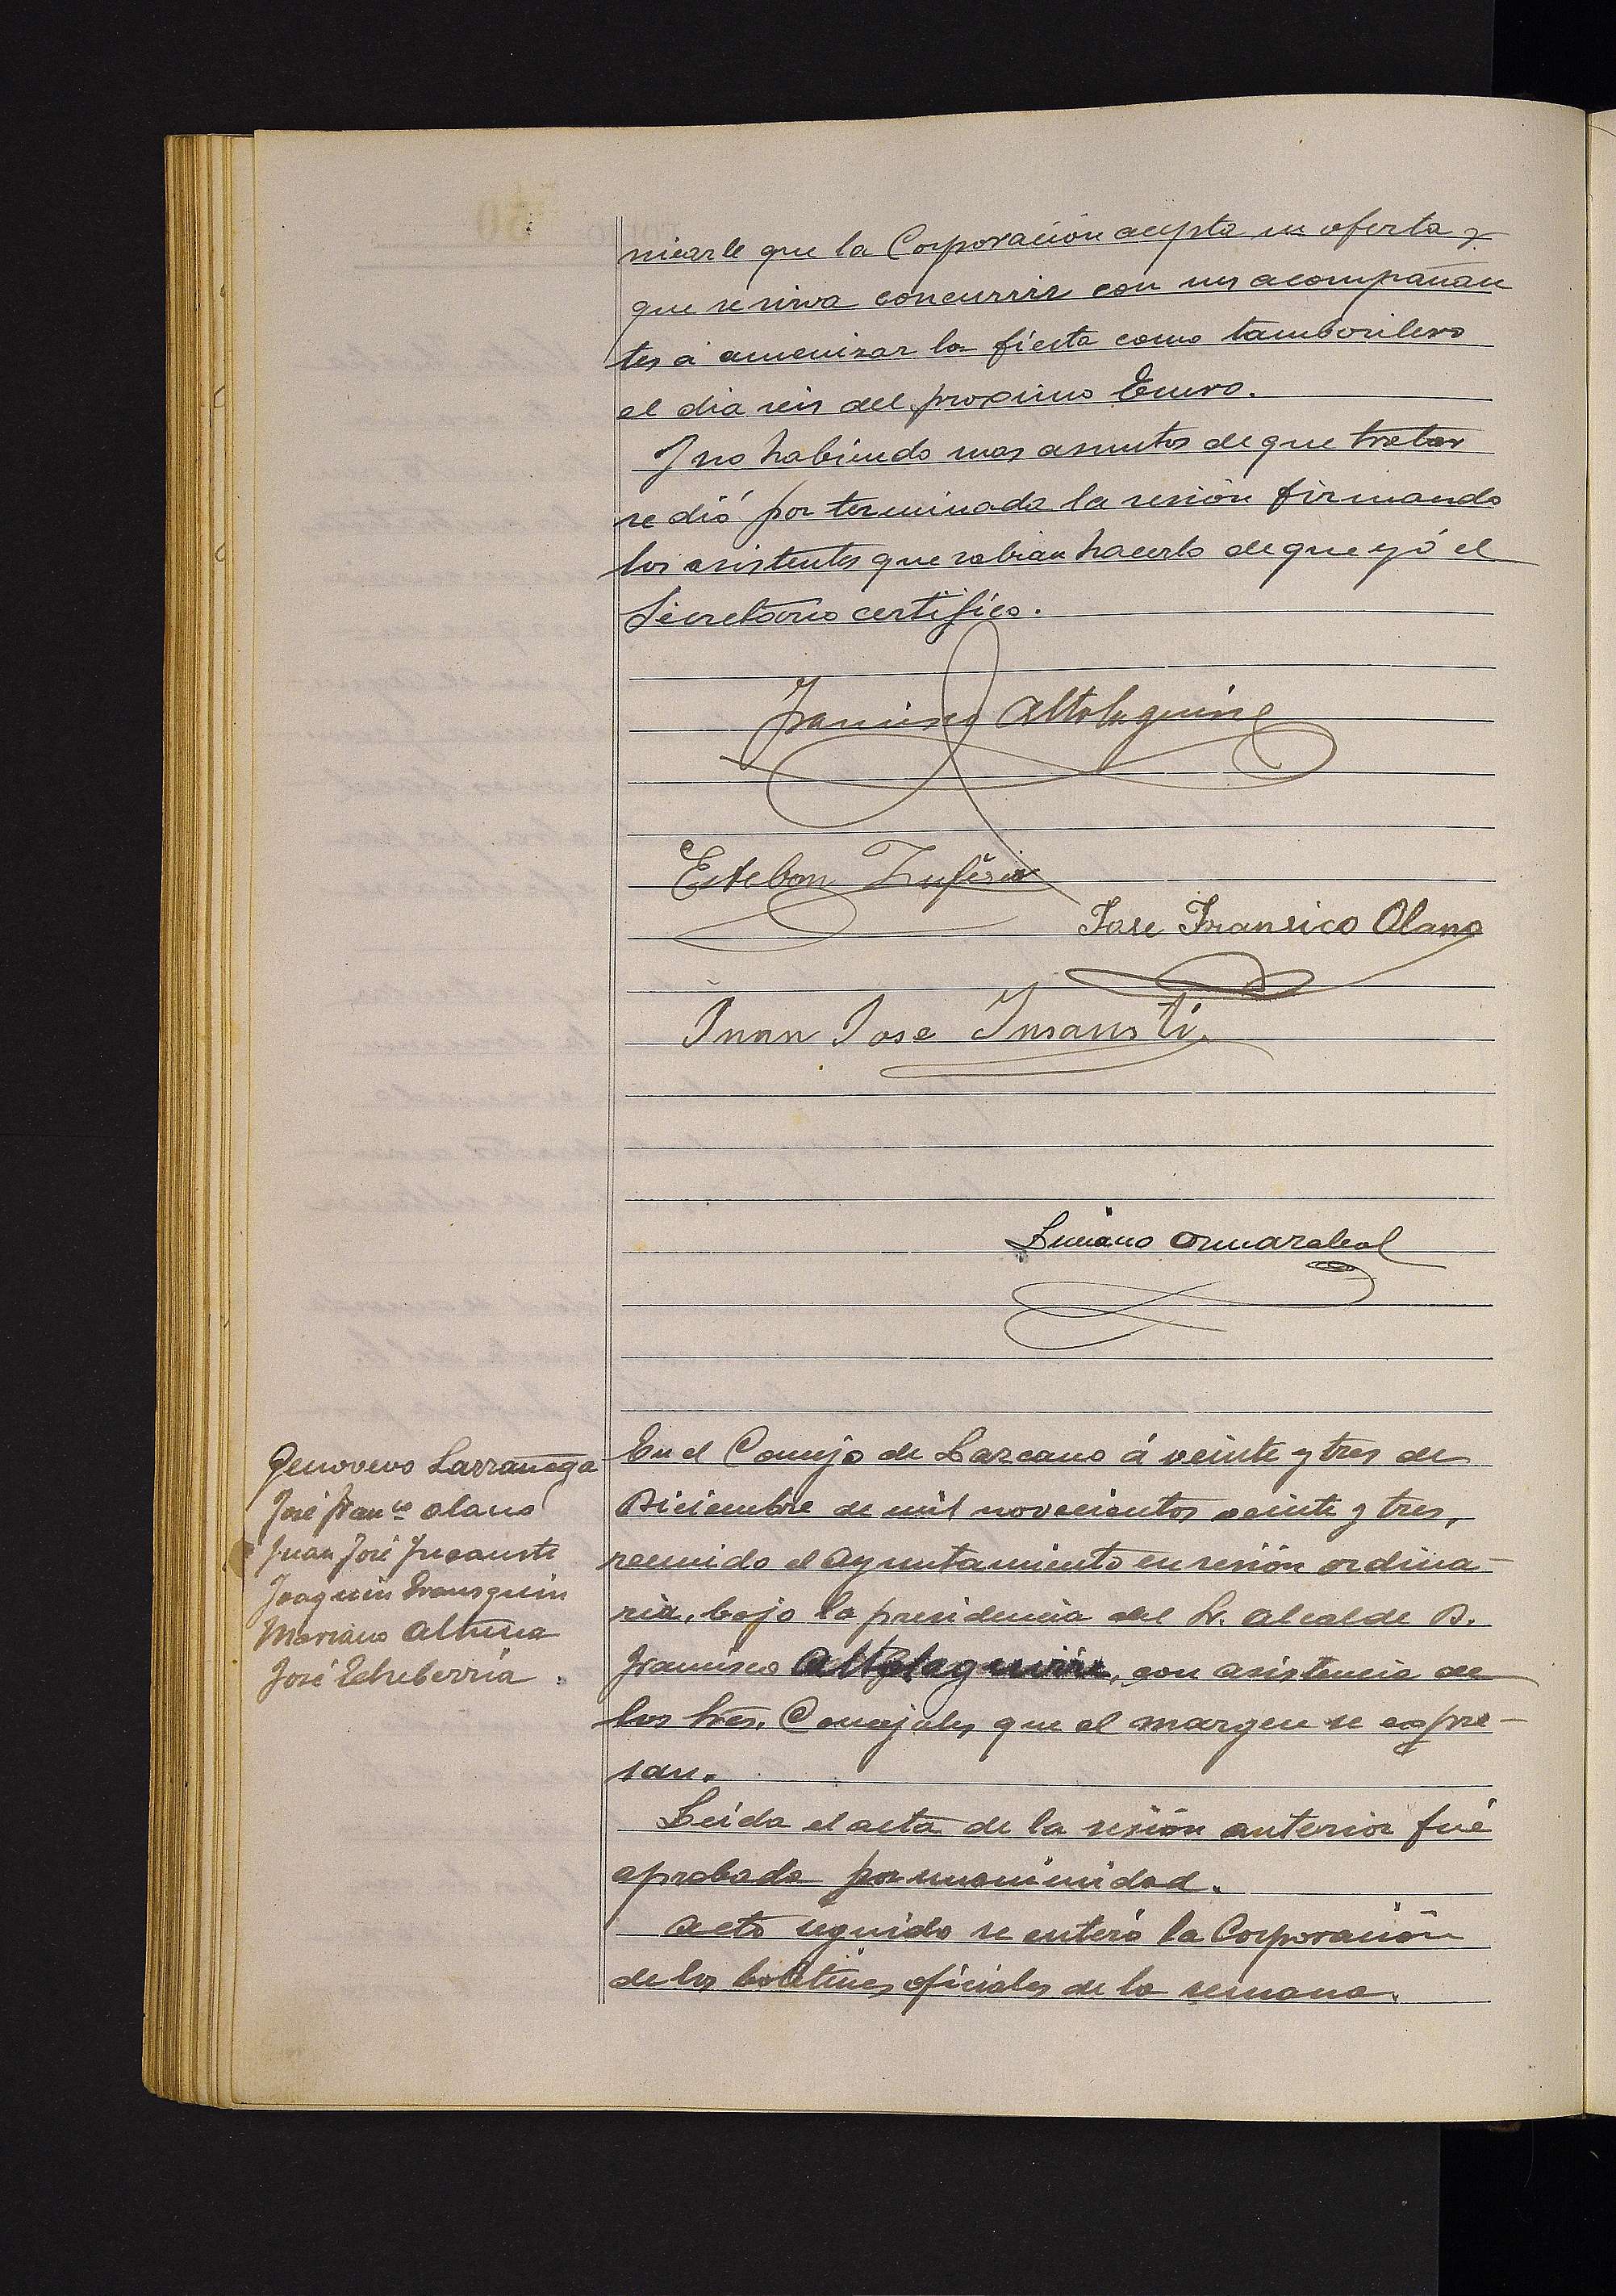 nicarle que la Corporación acepta su oferta y
que se sirva concurrir con sus acompañan
tes á amenizar la fiesta como tamborilero
el dia seis del proximo Enero.
Y no habiendo mas asuntos de que tratar
se dió por terminada la sesión firmando
los asistentes que sabian hacerlo de que yó el
Secretario certifico.
Francisco Altolaguirre
Esteban Zufiria
Jose Fransico Olano
Juan Jose Insausti
Luciano Ormazabal
En el Concejo de Lazcano á veinte y tres de
Diciembre de mil novecientos veinte y tres,
reunido el Ayuntamiento en sesión ordina-
ria, bajo la presidencia del Sr. Alcalde D.
Francisco Altolaguirre, con asistencia de
los Sres. Concejales que al margen se expre-
san.
Genovevo Larrañaga
José Franco Olano
Juan José Insausti
Joaquin Irausquin
Mariano Altuna
José Echeberria
Leida el acta de la sesión anterior fué
aprobada por unanimidad.
Acto seguido se enteró la Corporación
de los boletines oficiales de la semana.